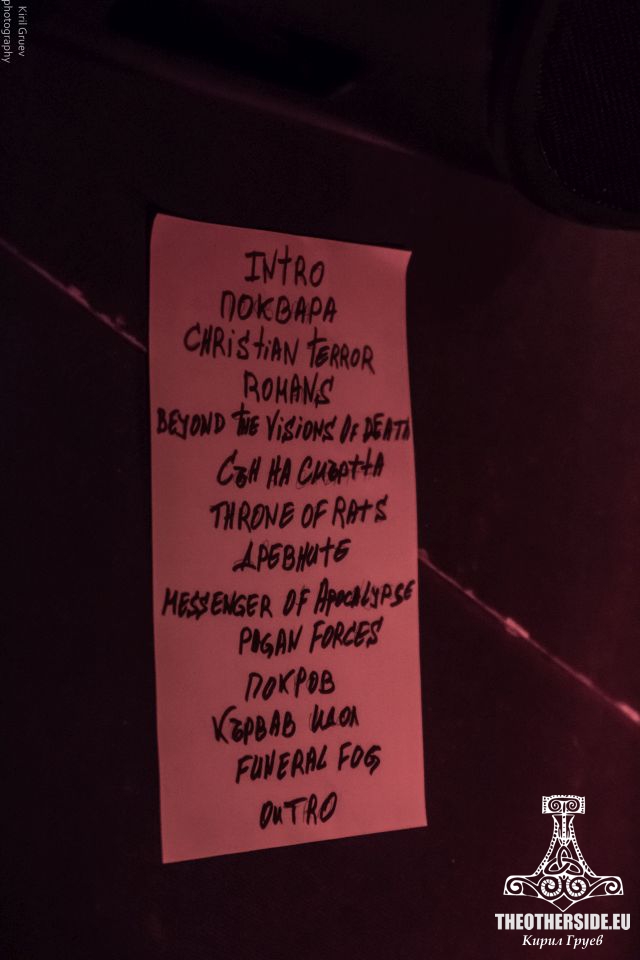 Kiril Gruev
photography
INTRO
ПОКВАРА
CHRISTIAN TERROR
ROMANS
BEYOND THE VISIONS OF DEATH
СЪН НА СМЪРТТА
THRONE OF RATS
ДРЕВНИТЕ
MESSENGER OF APOCALYPSE
PAGAN FORCES
ПОКРОВ
КЪРВАВ ИДОЛ
FUNERAL FOG
OUTRO
THEOTHERSIDE.EU
Кирил Груев